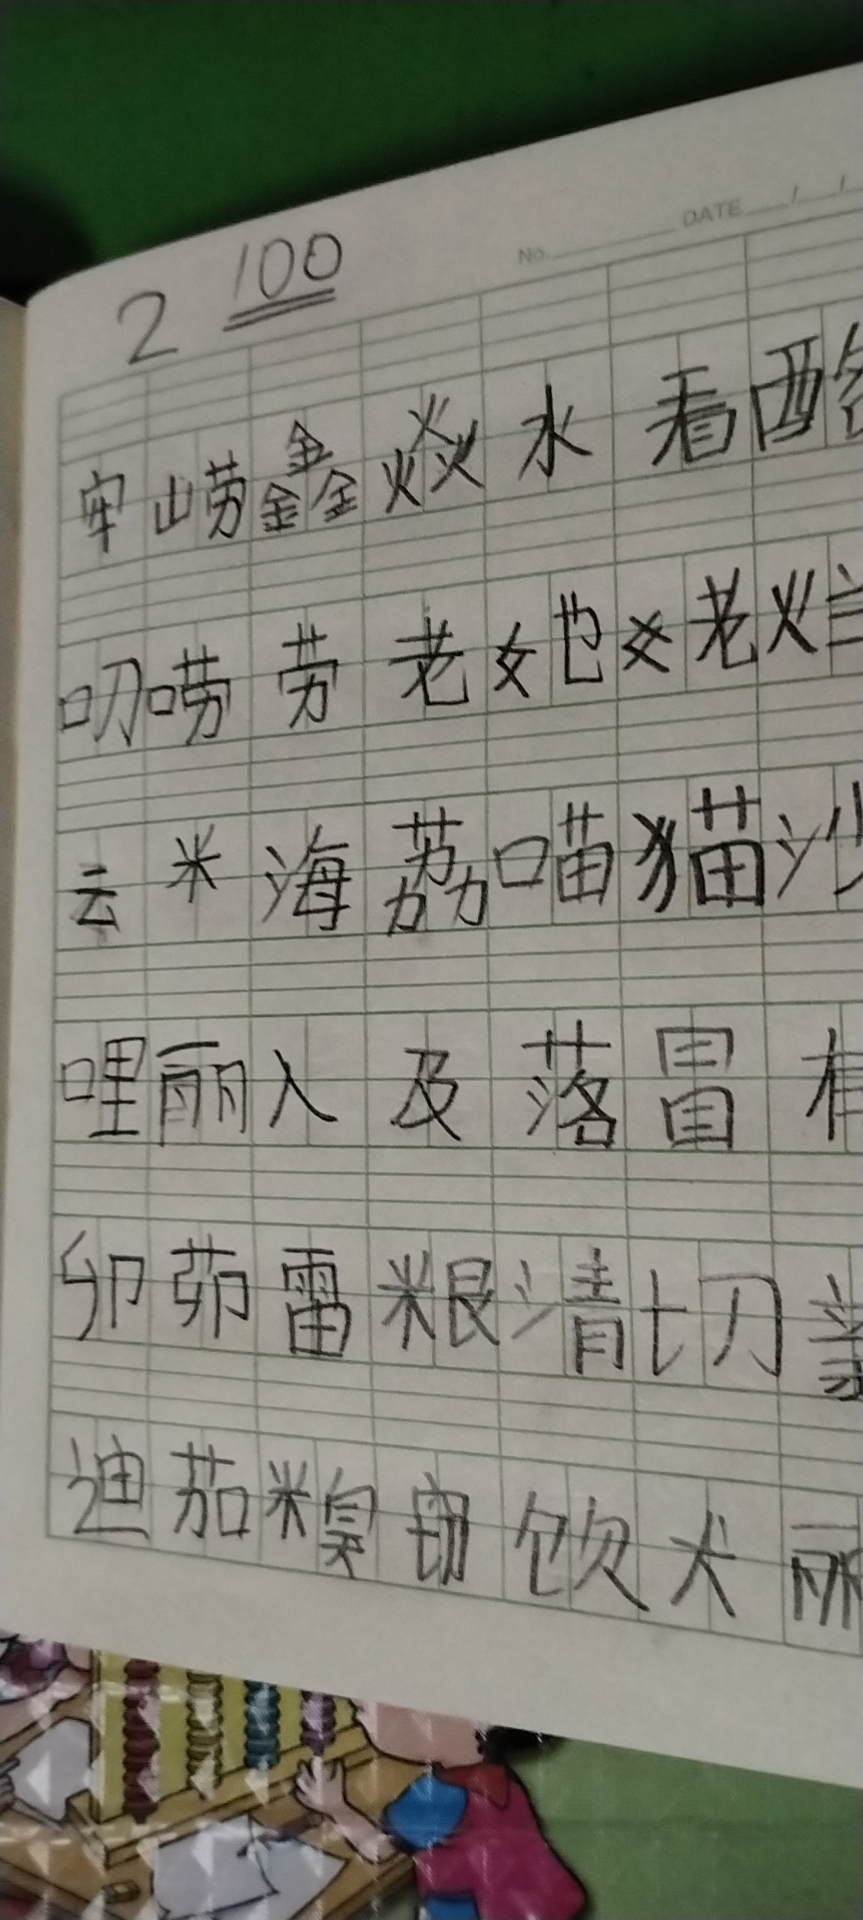 2 100
No. DATE / /
牢崂鑫焱水看酪
叨唠劳老她姥烂
云米海荔喵猫沙
哩丽入及落冒有
卯茆雷粮清切
迪茄糗窃饮犬丽